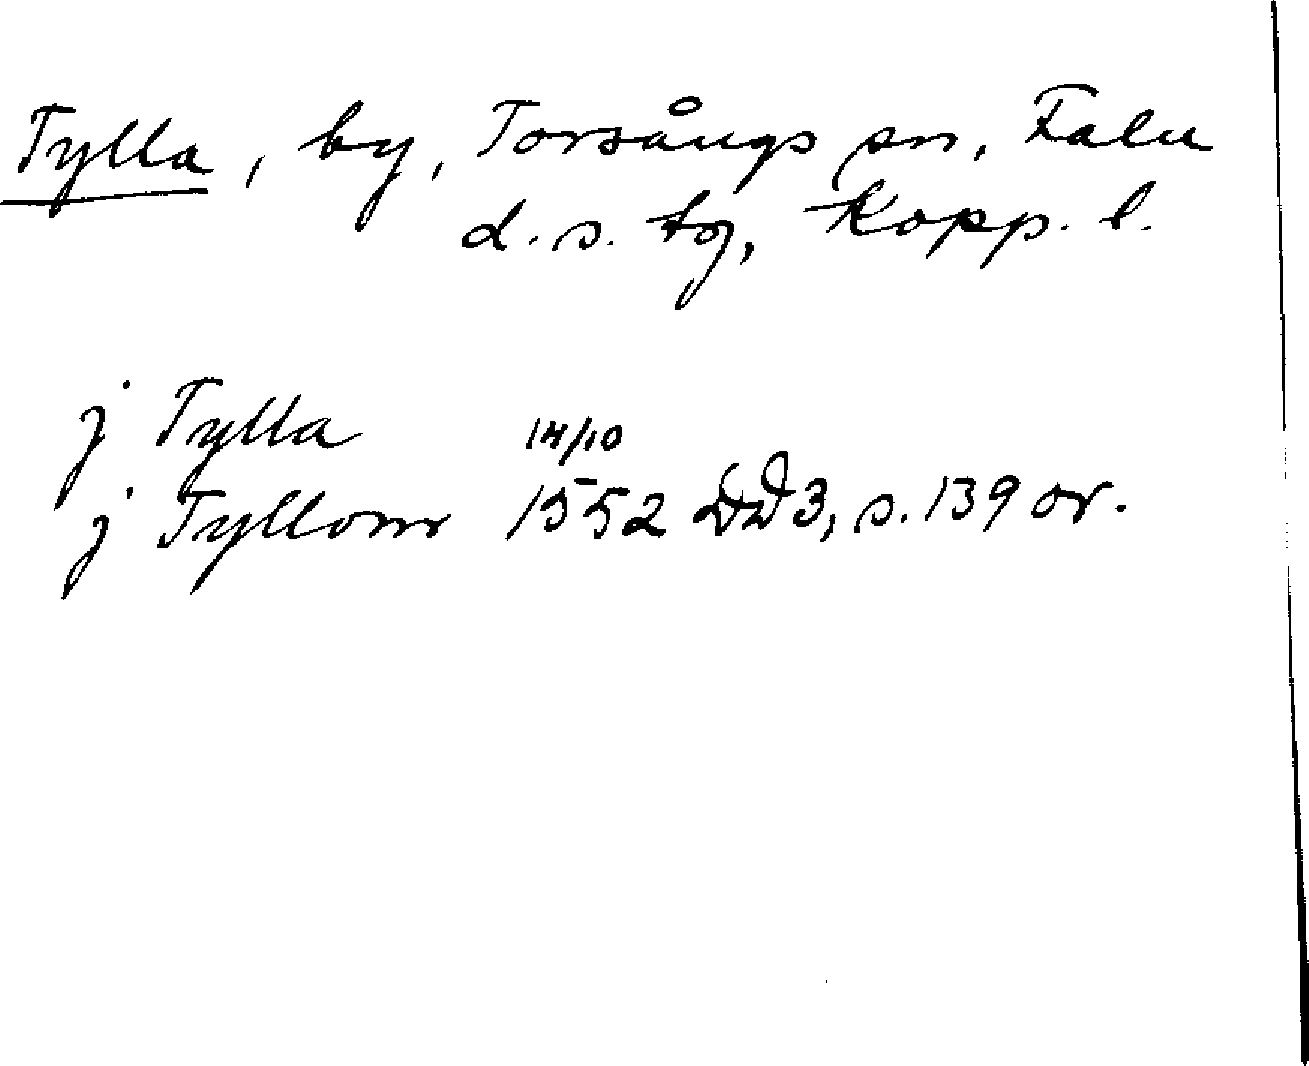 Tylla, by, Torsångs sn, Falu
d. s. tg, Kopp. l.
j Tylla 14/10
j Tyllom 1552 DD3, s. 139 or.